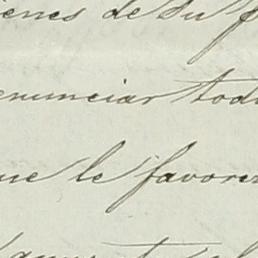 ienes de su f
enunciar tod
ue le favorez